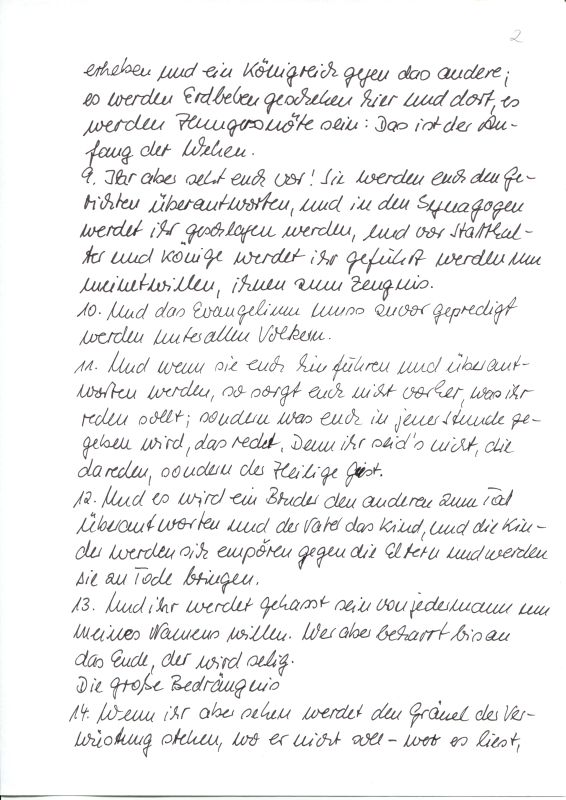 2
erheben und ein Königreich gegen das andere;
es werden Erdbeben geschehen hier und dort, es
werden Hungersnöte sein: Das ist der An-
fang der Wehen.
9. Ihr aber seht euch vor! Sie werden euch den Ge-
richten überantworten, und in den Synagogen
werdet ihr geschlagen werden, und vor Statthal-
ter und Könige werdet ihr geführt werden um
meinetwillen, ihnen zum Zeugnis.
10. Und das Evangelium muss zuvor gepredigt
werden unter allen Völkern.
11. Und wenn sie euch hinführen und überant-
worten werden, so sorgt euch nicht vorher, was ihr
reden sollt; sondern was euch in jener Stunde ge-
geben wird, das redet. Denn ihr seid's nicht, die
da reden, sondern der Heilige Geist.
12. Und es wird ein Bruder den anderen zum Tod
überantworten und der Vater das Kind, und die Kin-
der werden sich empören gegen die Eltern und werden
sie an Tode bringen.
13. Und ihr werdet gehasst sein von jedermann um
meines Namens willen. Wer aber beharrt bis an
das Ende, der wird selig.
Die große Bedrängnis
14. Wenn ihr aber sehen werdet den Gräuel der Ver-
wüstung stehen, wo er nicht soll - wer es liest,